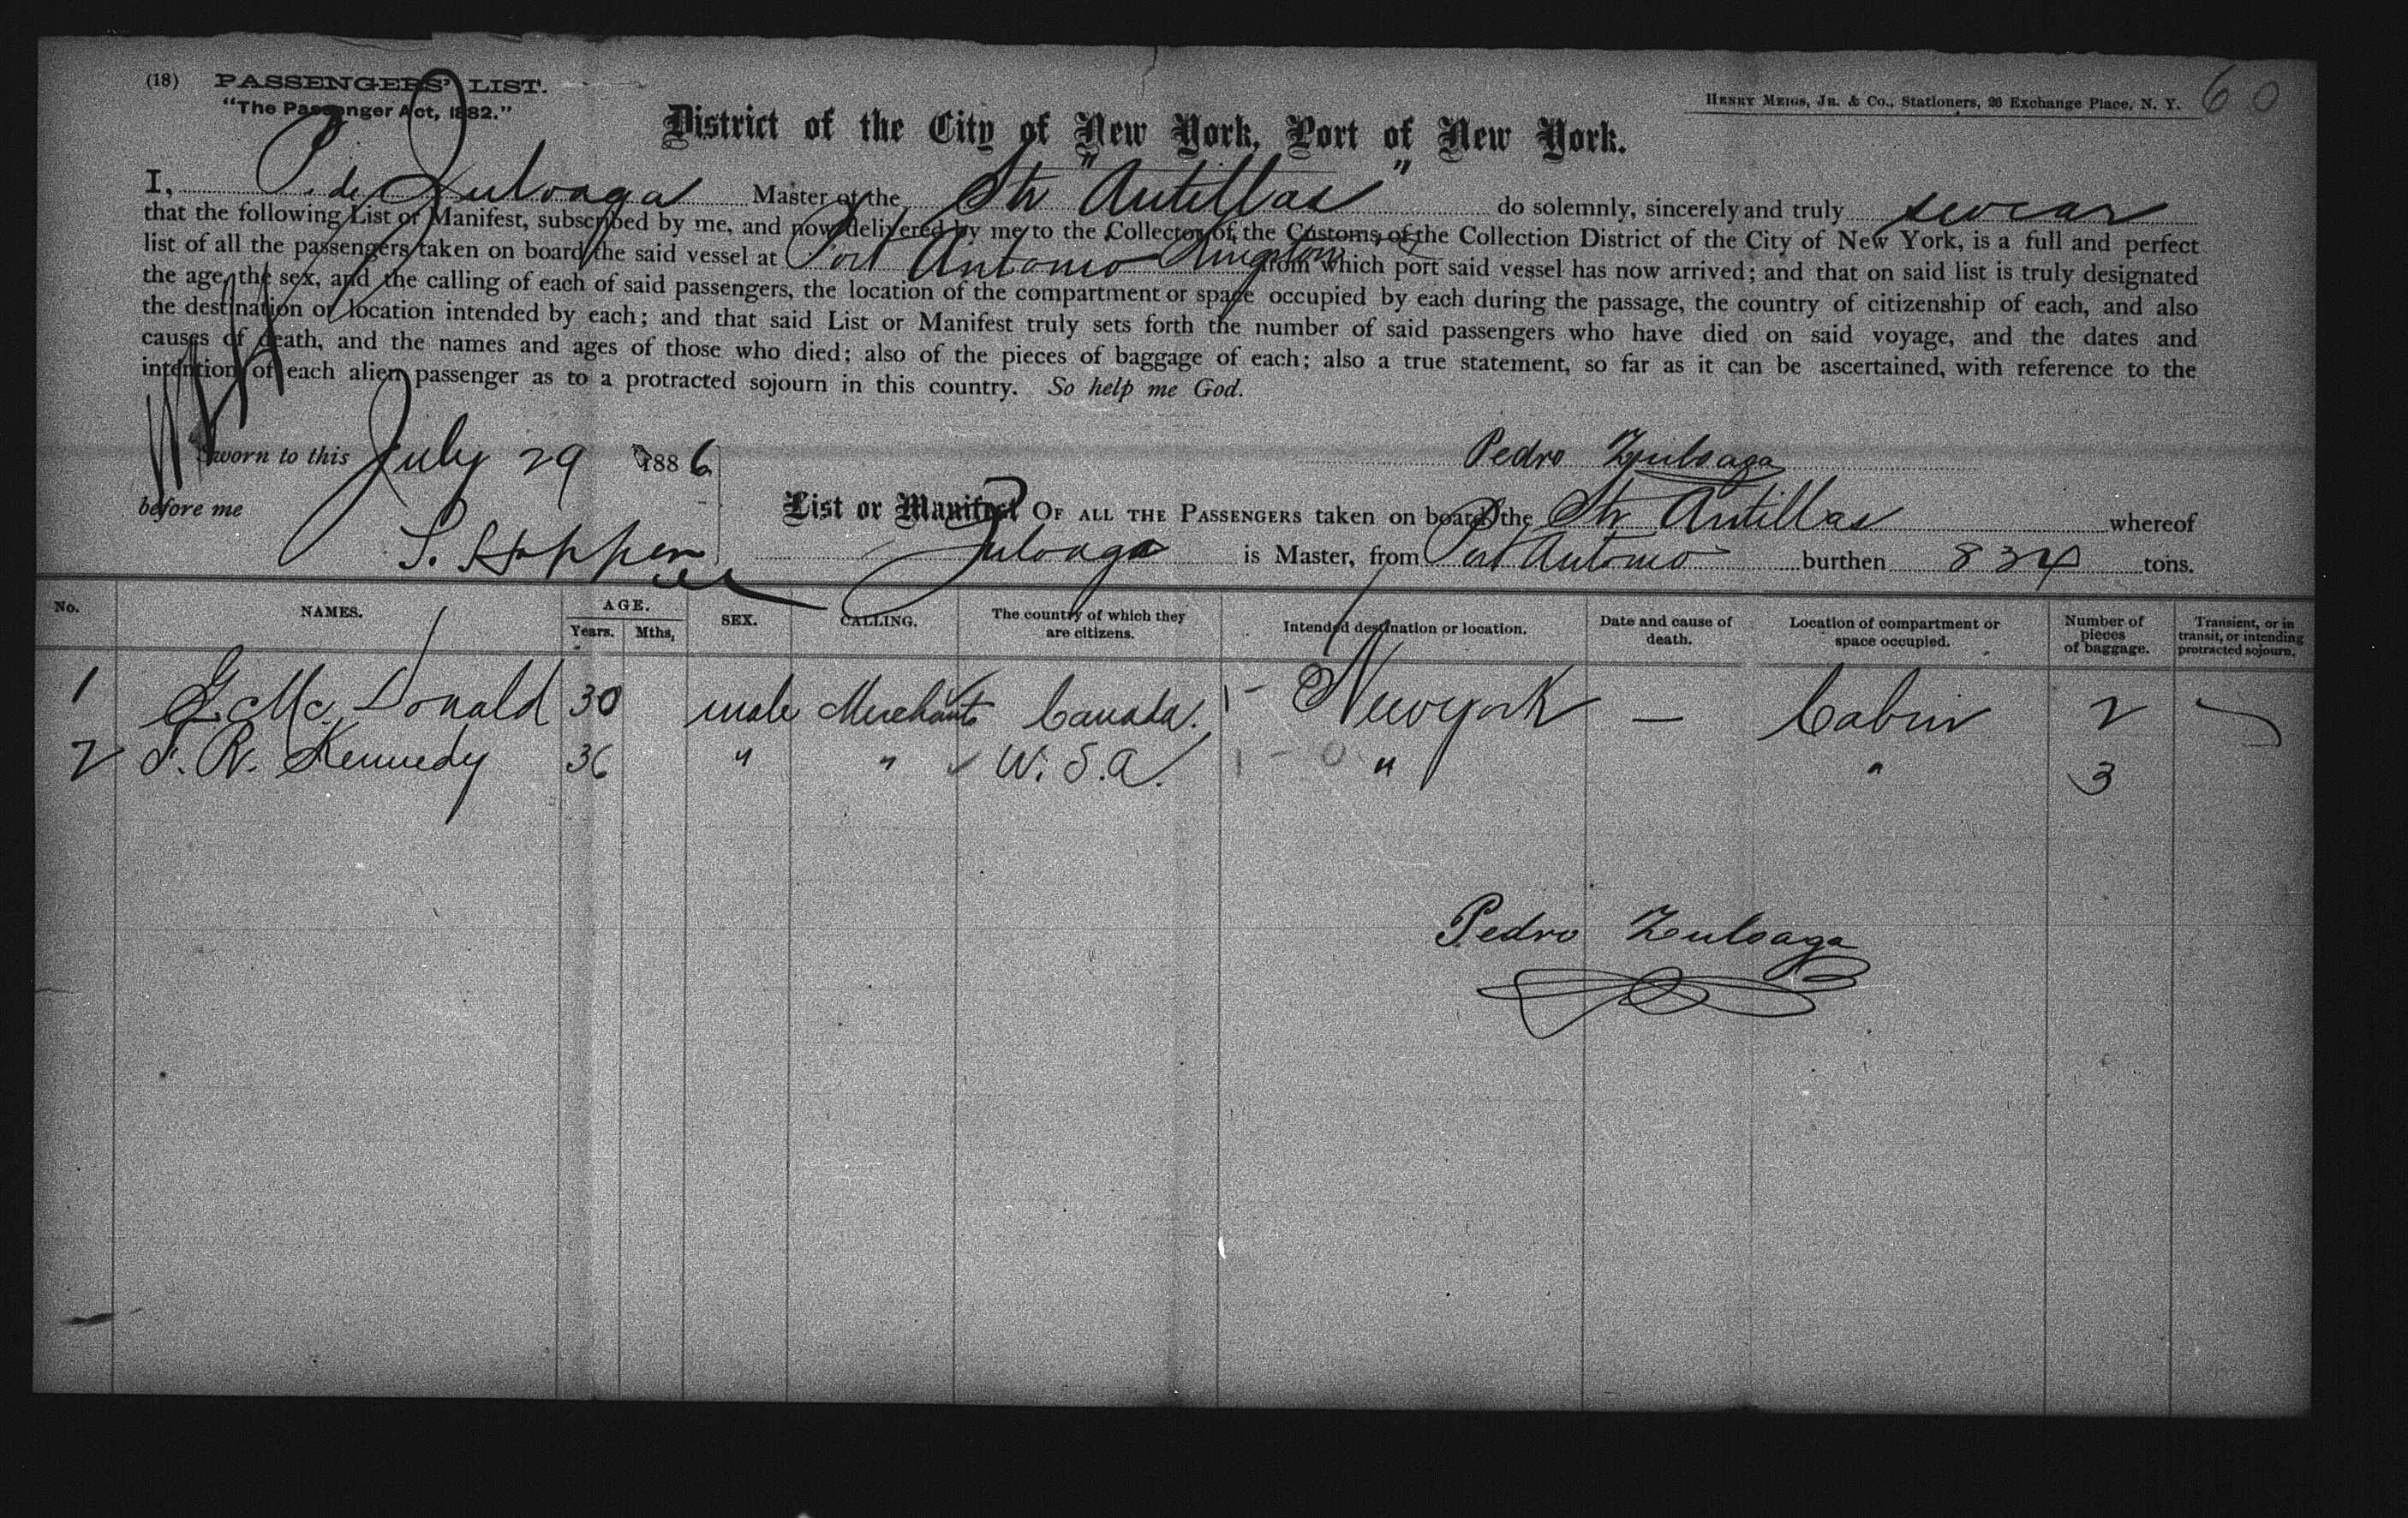 (18) PASSENGERS' LIST.
"The Passenger Act, 1882."
HENRY MEIGS, JR. & CO., Stationers, 26 Exchange Place, N. Y.
60
District of the City of New York, Port of New York.
I, P. de Zuloaga Master of the Str "Antillas" do solemnly, sincerely and truly swear
that the following List or Manifest, subscribed by me, and now delivered by me to the Collector of the Customs, of the Collection District of the City of New York, is a full and perfect
list of all the passengers taken on board the said vessel at Port Antonio Kingston from which port said vessel has now arrived; and that on said list is truly designated
the age, the sex, and the calling of each of said passengers, the location of the compartment or space occupied by each during the passage, the country of citizenship of each, and also
the destination or location intended by each; and that said List or Manifest truly sets forth the number of said passengers who have died on said voyage, and the dates and
causes of death, and the names and ages of those who died; also of the pieces of baggage of each; also a true statement, so far as it can be ascertained, with reference to the
intention of each alien passenger as to a protracted sojourn in this country. So help me God.
Sworn to this July 29 1886
Pedro Zuloaga
before me
S. Hopper
List or Manifest OF ALL THE PASSENGERS taken on board the Str Antillas whereof
Zuloaga is Master, from Port Antonio burthen 834 tons.
No. NAMES. AGE. Years. Mths, SEX. CALLING. The country of which they are citizens. Intended destination or location. Date and cause of death. Location of compartment or space occupied. Number of pieces of baggage. Transient, or in transit, or intending protracted sojourn.
1 G. Mc. Donald 30 male Merchants Canada. 1 - New york — Cabin 2
2 F. R. Kennedy 36 " " U. S. A. 1 - 0 " " 3
Pedro Zuloaga